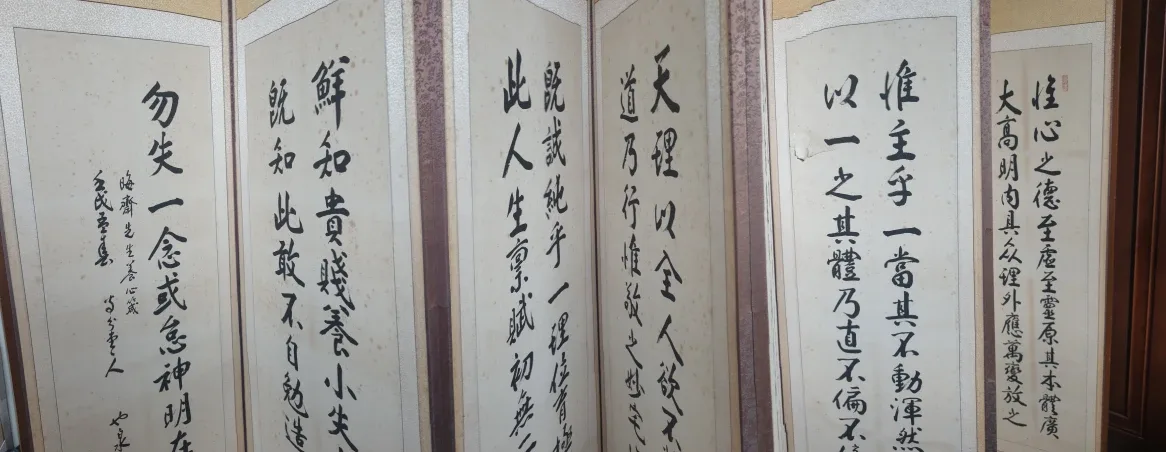 惟心之德至虛至靈原其本體廣
大高明內具众理外應萬變放之
惟主乎一當其不動渾然
以一之其體乃直不偏不
天理以全人欲不
道乃行惟敬之
既誠純乎一理位育極
此人生禀賦初無
鮮知貴賤養小失
既知此敢不自勉造
勿失一念或怠神明在
晦齋先生養心箴